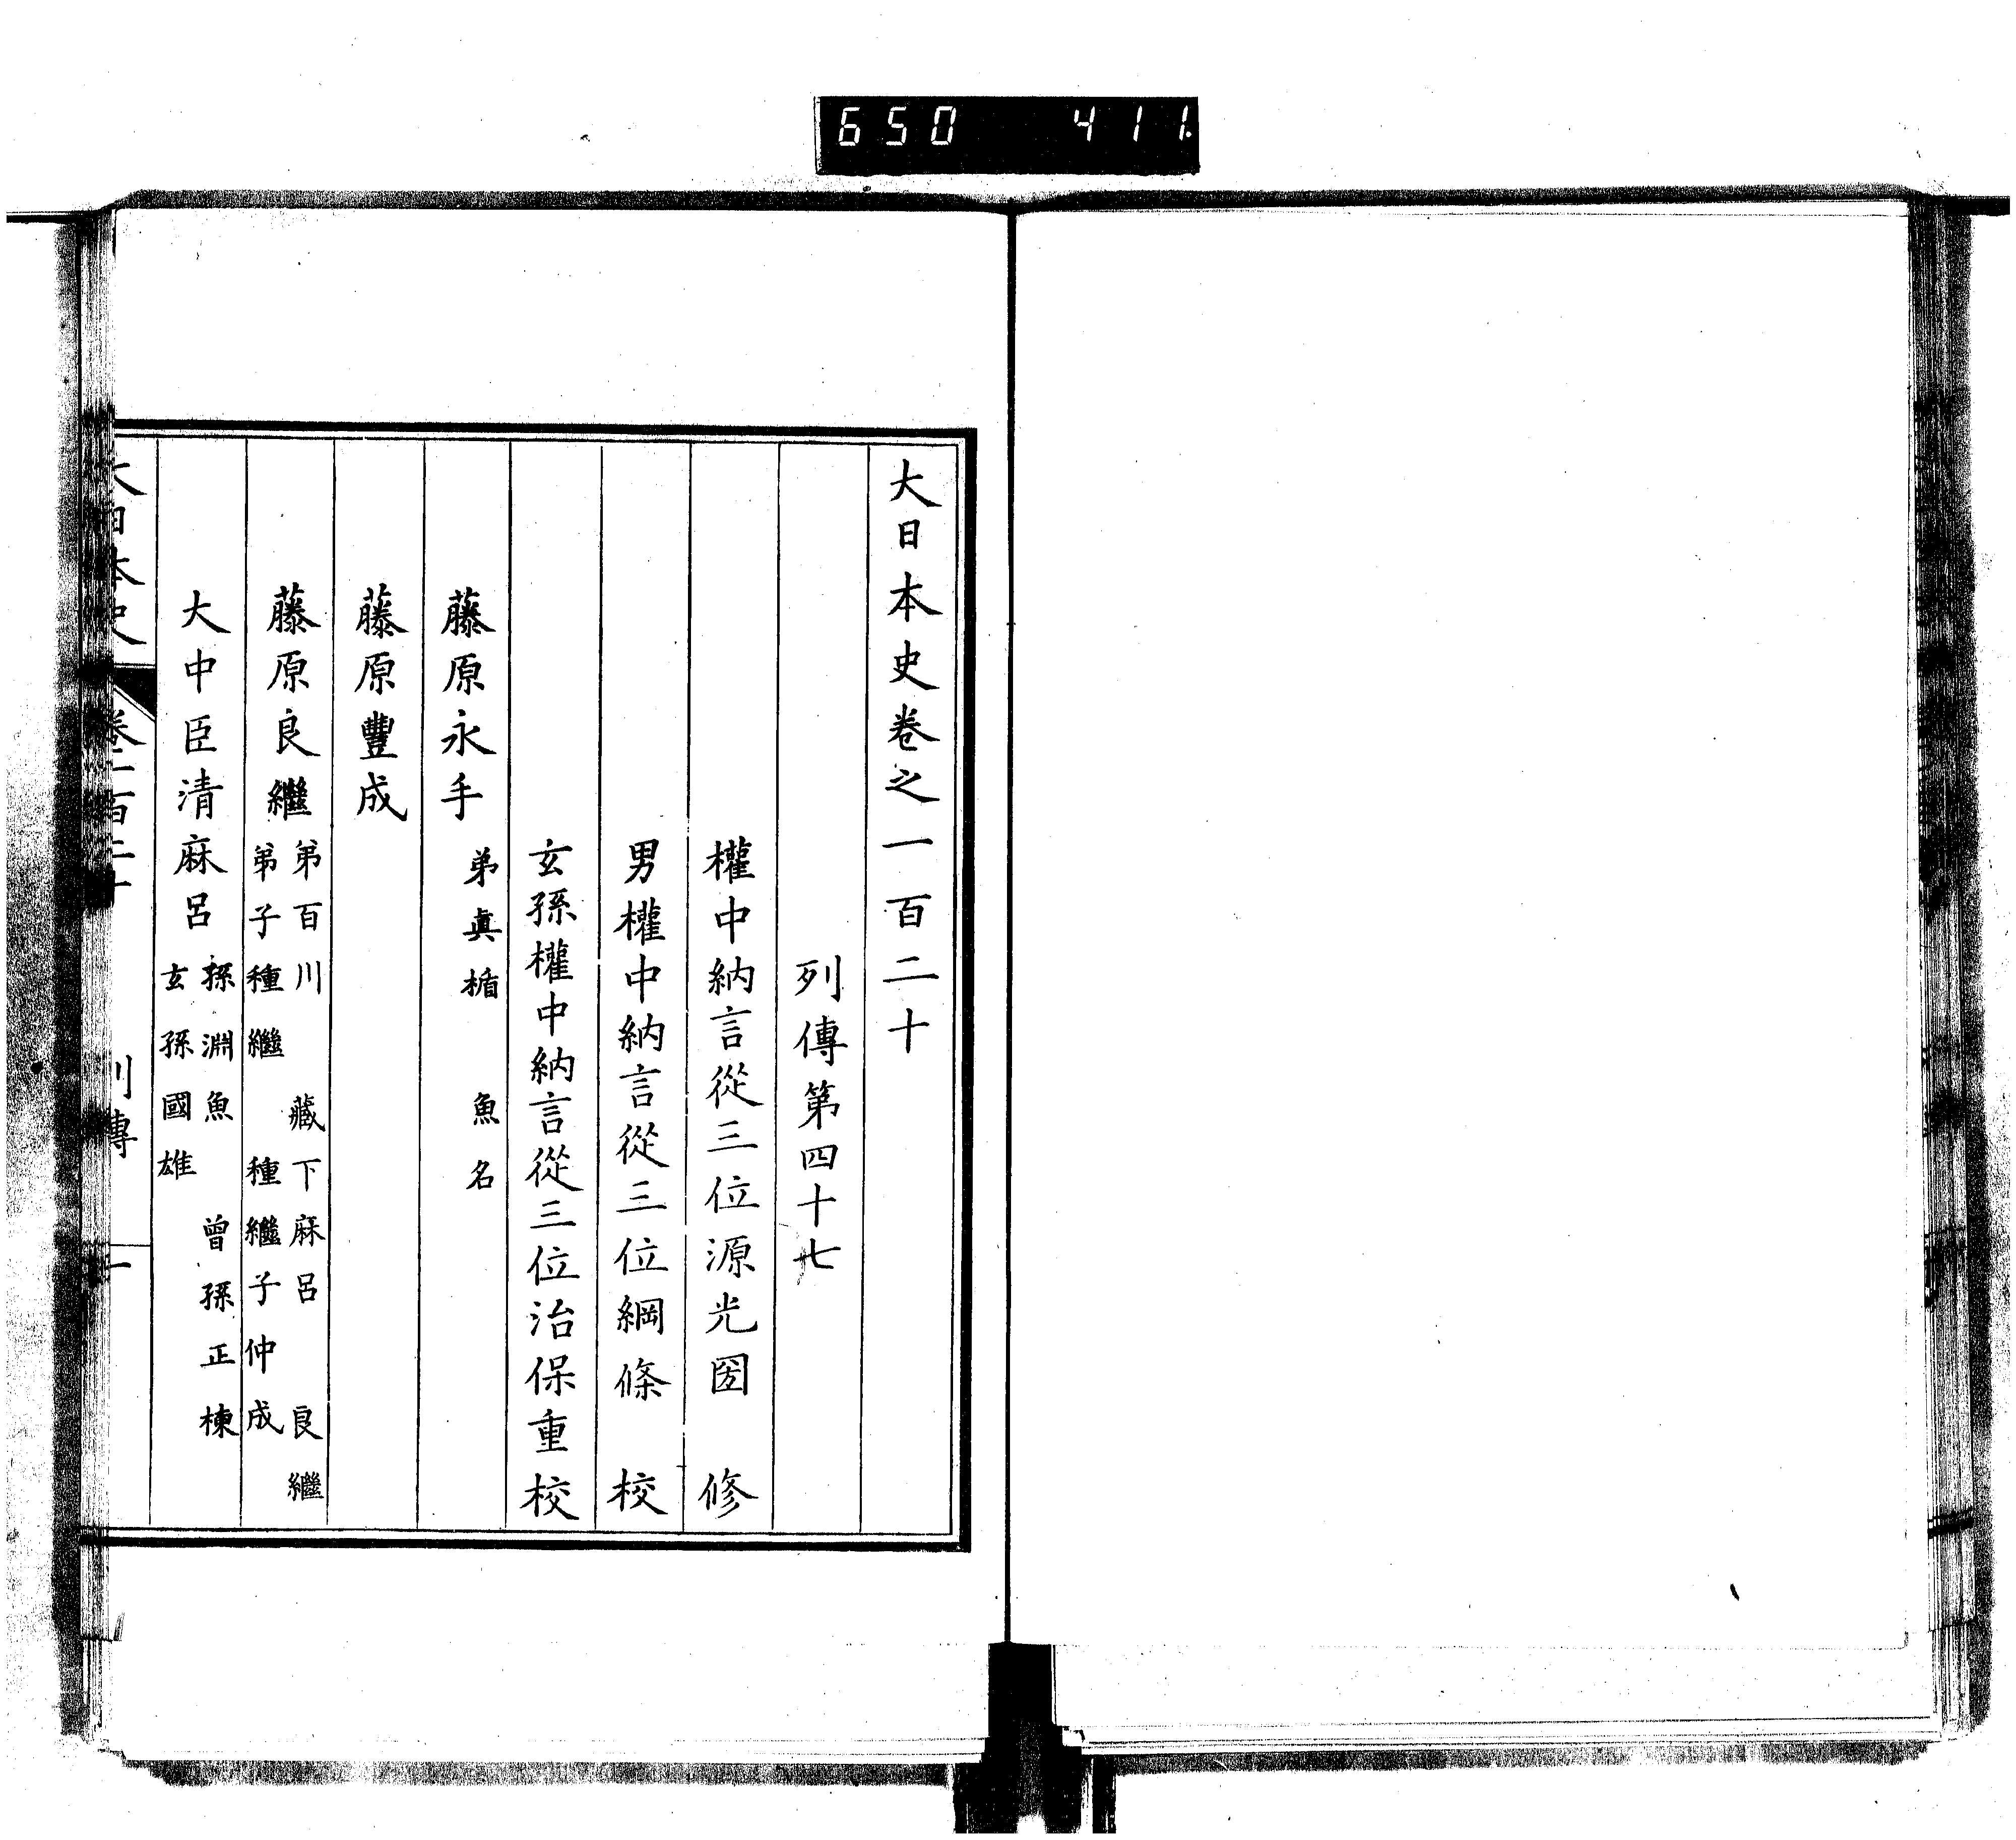 650 411
大日本史卷之一百二十
列傳第四十七
權中納言從三位源光圀 修
男權中納言從三位綱條 校
玄孫權中納言從三位治保重校
藤原永手 弟眞楯 魚名
藤原豐成
藤原良繼 弟百川 藏下麻呂 良繼
弟子種繼 種繼子仲成
大中臣清麻呂 孫淵魚 曾孫正棟
玄孫國雄
大日本史 卷一百二十 列傳 一